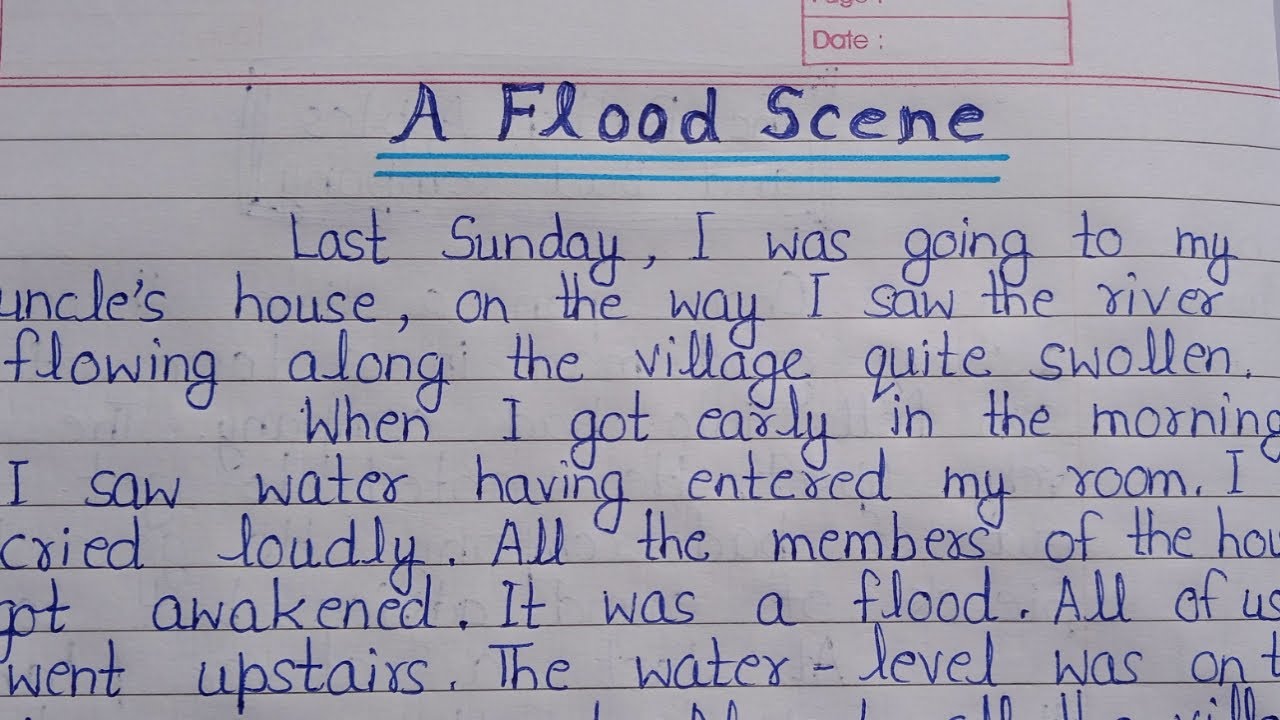 Page :
Date :
A Flood Scene
Last Sunday, I was going to my
uncle's house, on the way I saw the river
flowing along the village quite swollen.
When I got early in the morning
I saw water having entered my room. I
cried loudly. All the members of the hou
got awakened. It was a flood. All of us
went upstairs. The water-level was on t